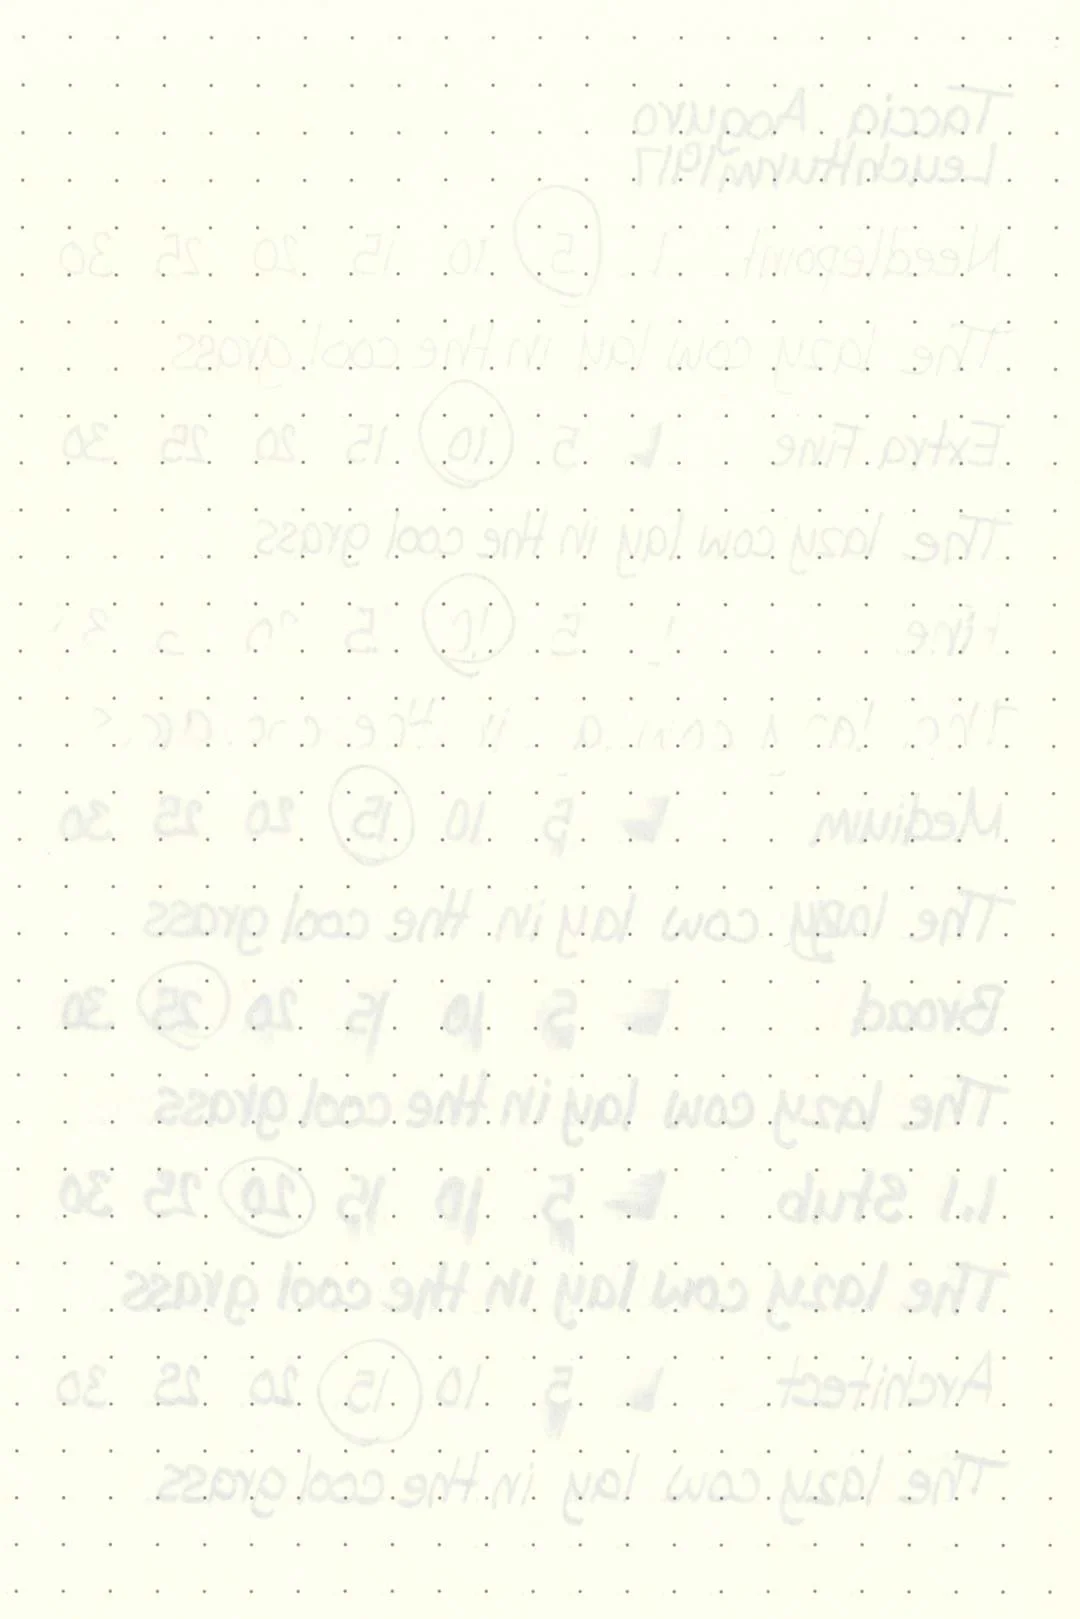 Taccia Aoguro
Leuchtturm1917
Needlepoint 1 5 10 15 20 25 30
The lazy cow lay in the cool grass
Extra Fine 1 5 10 15 20 25 30
The lazy cow lay in the cool grass
Fine 1 5 10
The
Medium 1 5 10 15 20 25 30
The lazy cow lay in the cool grass
Broad 1 5 10 15 20 25 30
The lazy cow lay in the cool grass
1.1 Stub 1 5 10 15 20 25 30
The lazy cow lay in the cool grass
Architect 1 5 10 15 20 25 30
The lazy cow lay in the cool grass